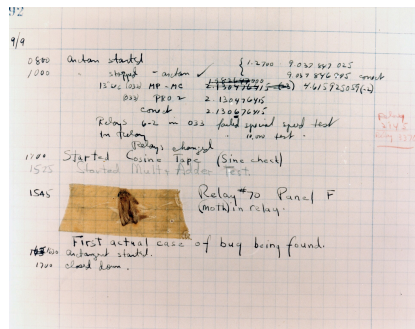 92
9/9
0800 Antan started { 1.2700 9.037 847 025
1000 " stopped - antan ✓ 9.037 846 995 correct
13"uc (032) MP - MC 2.130476415 (-3) 4.615925059(-2)
(033) PRO 2 2.130476415
correct 2.130676415
Relays 6-2 in 033 failed special speed test
In Relay 10,000 test.
Relays changed
Relay
1700 Started Cosine Tape (Sine check)
1525 Started Multi Adder Test.
1545 Relay #70 Panel F
(moth) in relay.
First actual case of bug being found.
1630 antangent started.
1700 closed down.